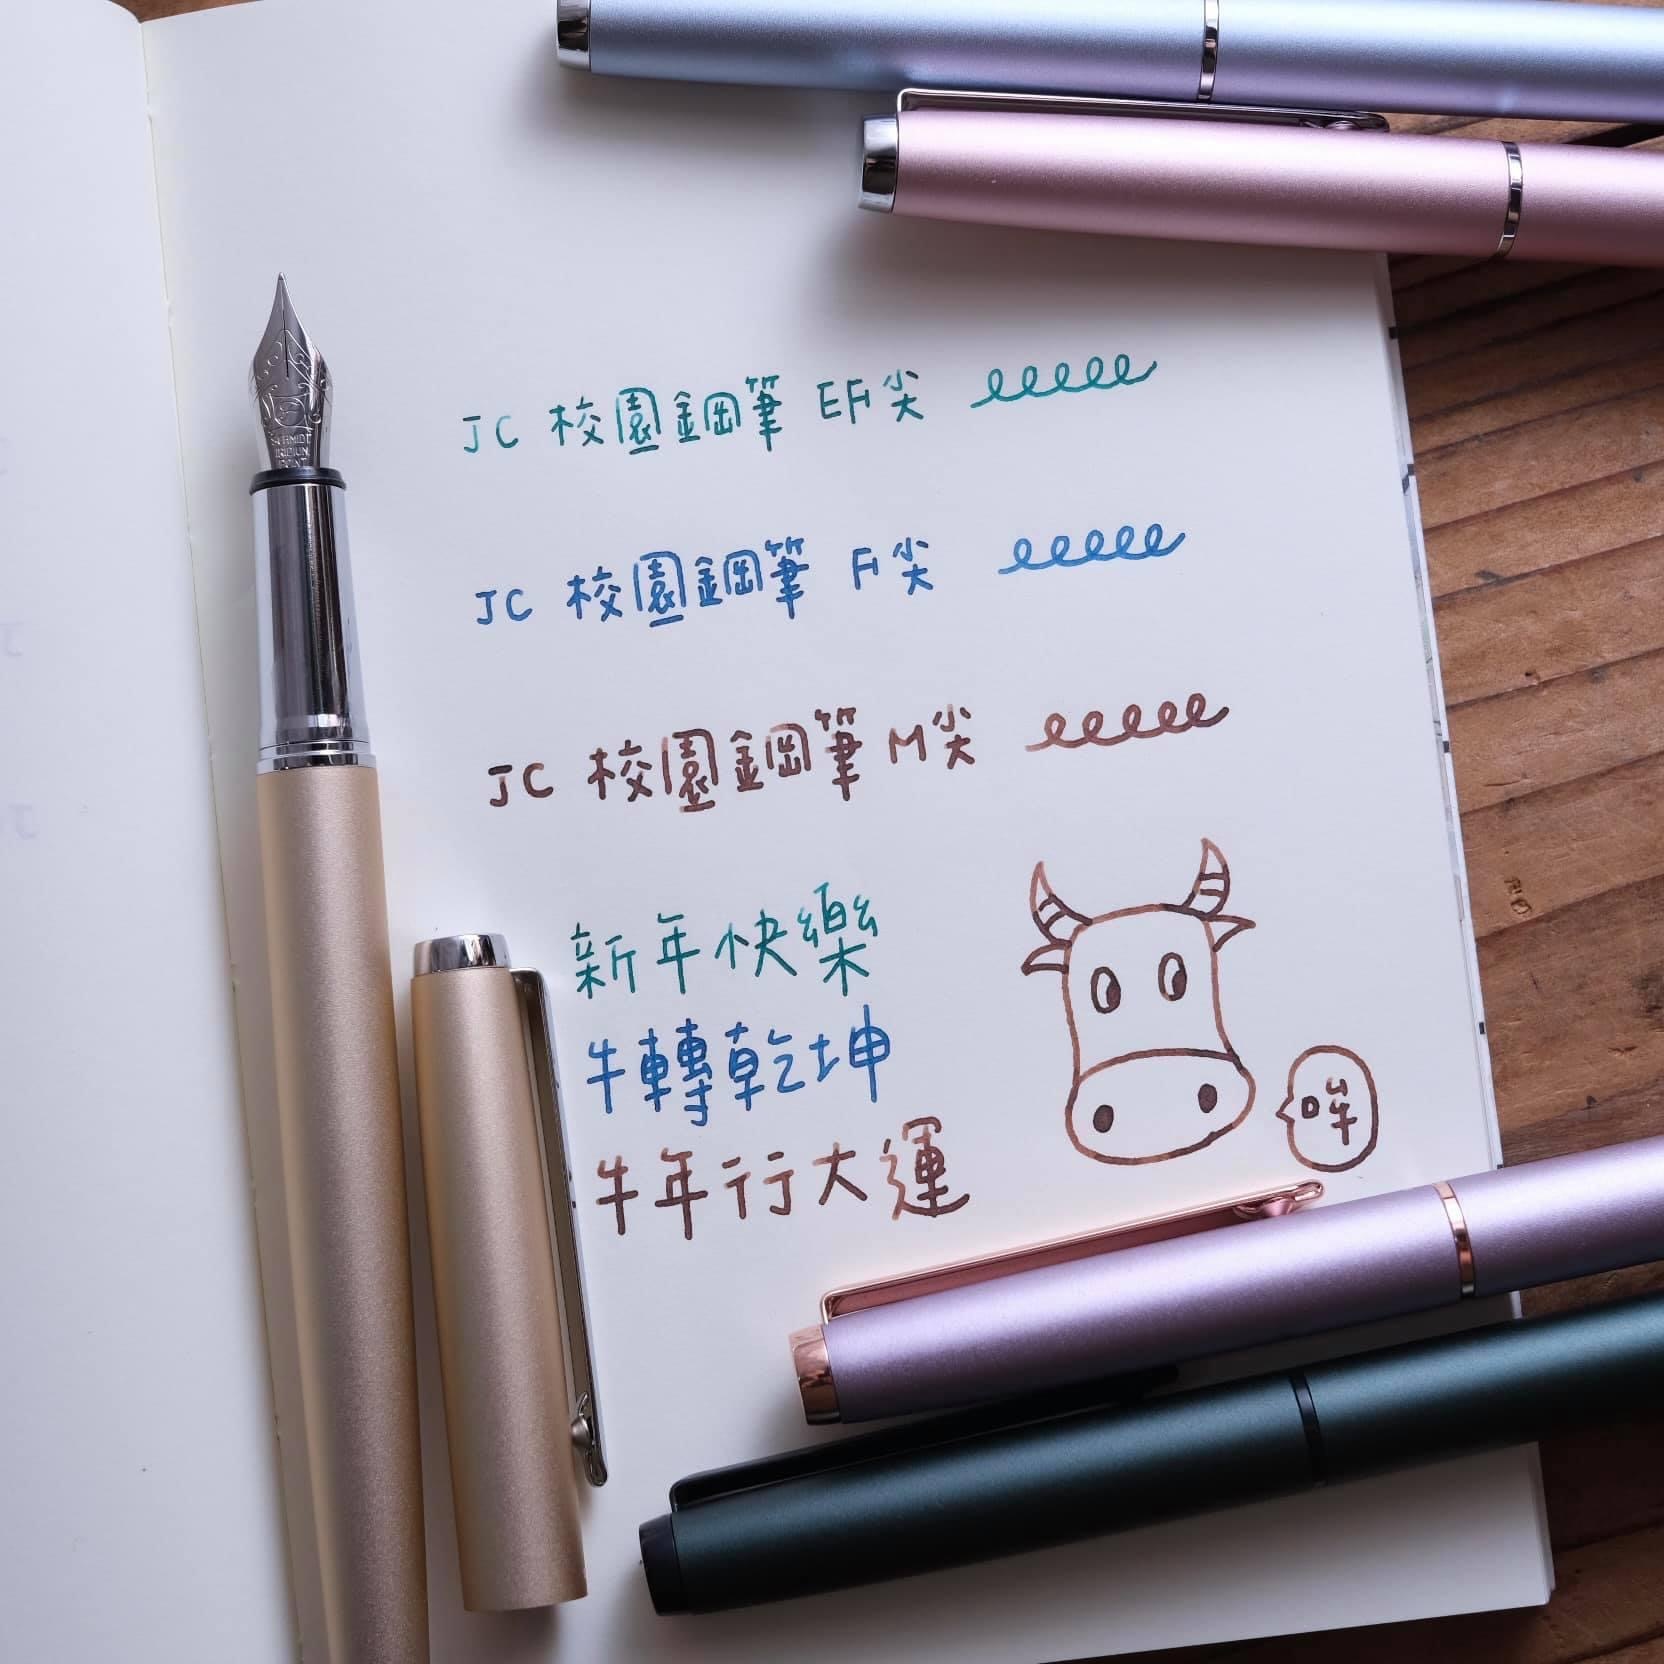 SCHMIDT
IRIDIUM
POINT
JC 校園鋼筆 EF尖
JC 校園鋼筆 F尖
JC 校園鋼筆 M尖
新年快樂
牛轉乾坤
牛年行大運
哞